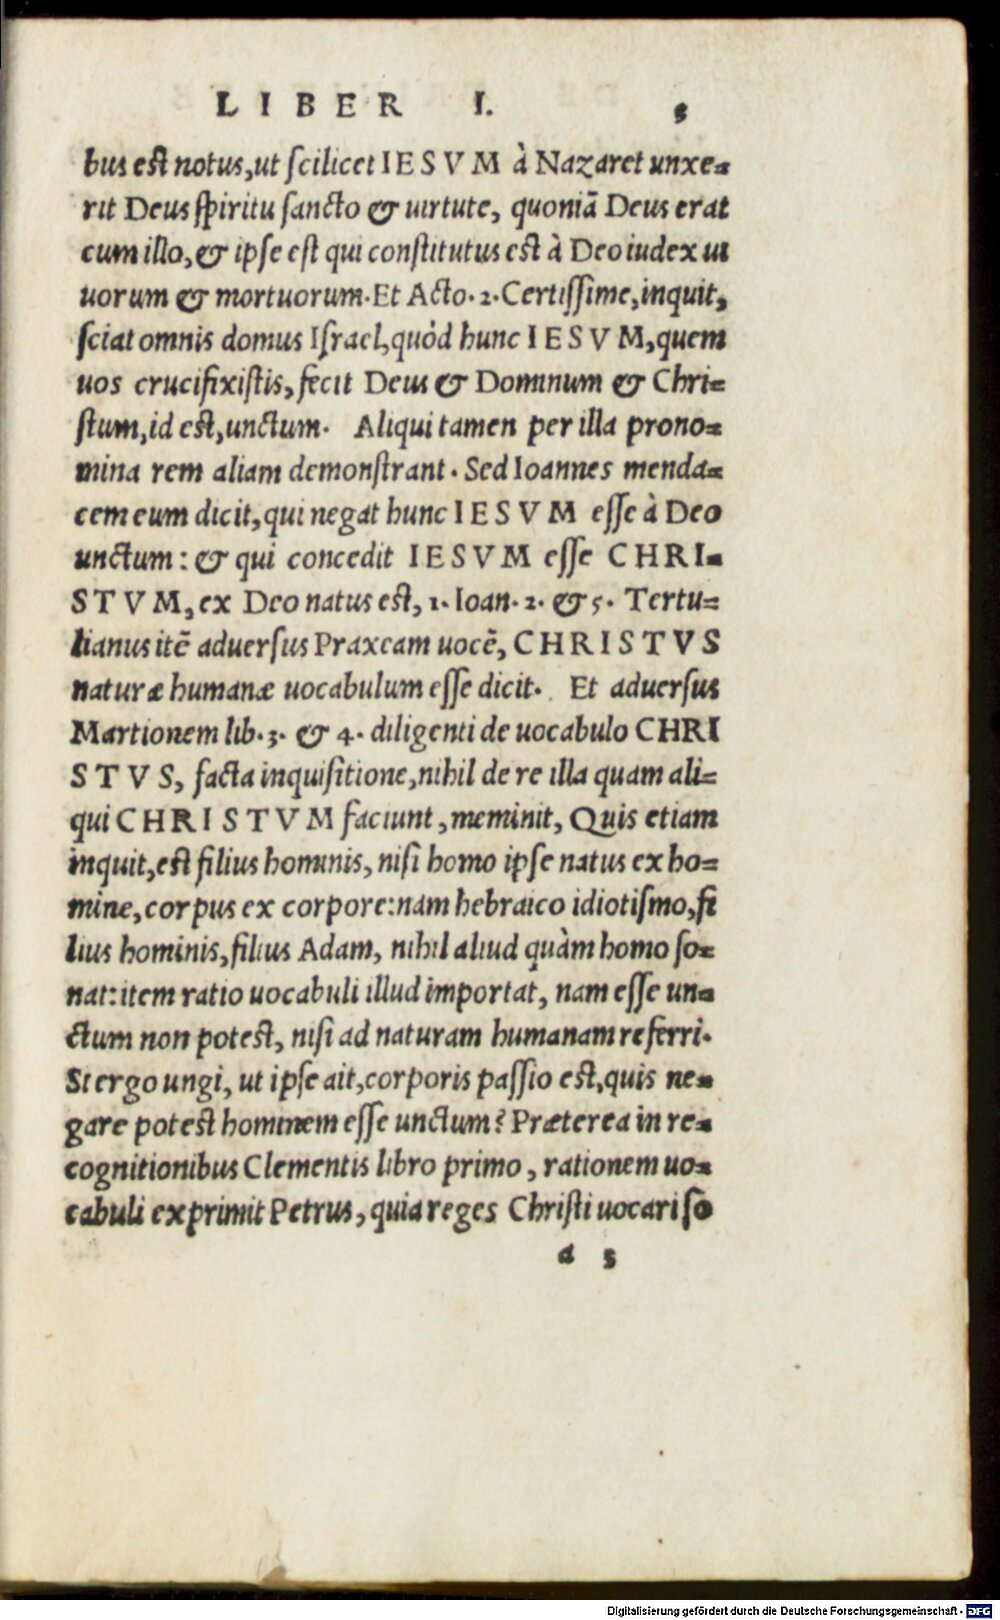 LIBER I. 5
bus est notus, ut scilicet IESVM à Nazaret unxe-
rit Deus spiritu sancto & uirtute, quoniã Deus erat
cum illo, & ipse est qui constitutus est à Deo iudex ui
uorum & mortuorum. Et Acto. 2. Certissime, inquit,
sciat omnis domus Israel, quòd hunc IESVM, quem
uos crucifixistis, fecit Deus & Dominum & Chri-
stum, id est, unctum. Aliqui tamen per illa prono-
mina rem aliam demonstrant. Sed Ioannes menda-
cem eum dicit, qui negat hunc IESVM esse à Deo
unctum: & qui concedit IESVM esse CHRI-
STVM, ex Deo natus est, 1. Ioan. 2. & 5. Tertu-
lianus itē aduersus Praxeam uocē, CHRISTVS
naturæ humanæ uocabulum esse dicit. Et aduersus
Martionem lib. 3. & 4. diligenti de uocabulo CHRI
STVS, facta inquisitione, nihil de re illa quam ali-
qui CHRISTVM faciunt, meminit, Quis etiam
inquit, est filius hominis, nisi homo ipse natus ex ho-
mine, corpus ex corpore: nam hebraico idiotismo, fi
lius hominis, filius Adam, nihil aliud quàm homo so-
nat: item ratio uocabuli illud importat, nam esse un-
ctum non potest, nisi ad naturam humanam referri.
Si ergo ungi, ut ipse ait, corporis passio est, quis ne-
gare potest hominem esse unctum? Præterea in re-
cognitionibus Clementis libro primo, rationem uo-
cabuli exprimit Petrus, quia reges Christi uocari so
a 5
Digitalisierung gefördert durch die Deutsche Forschungsgemeinschaft - DFG